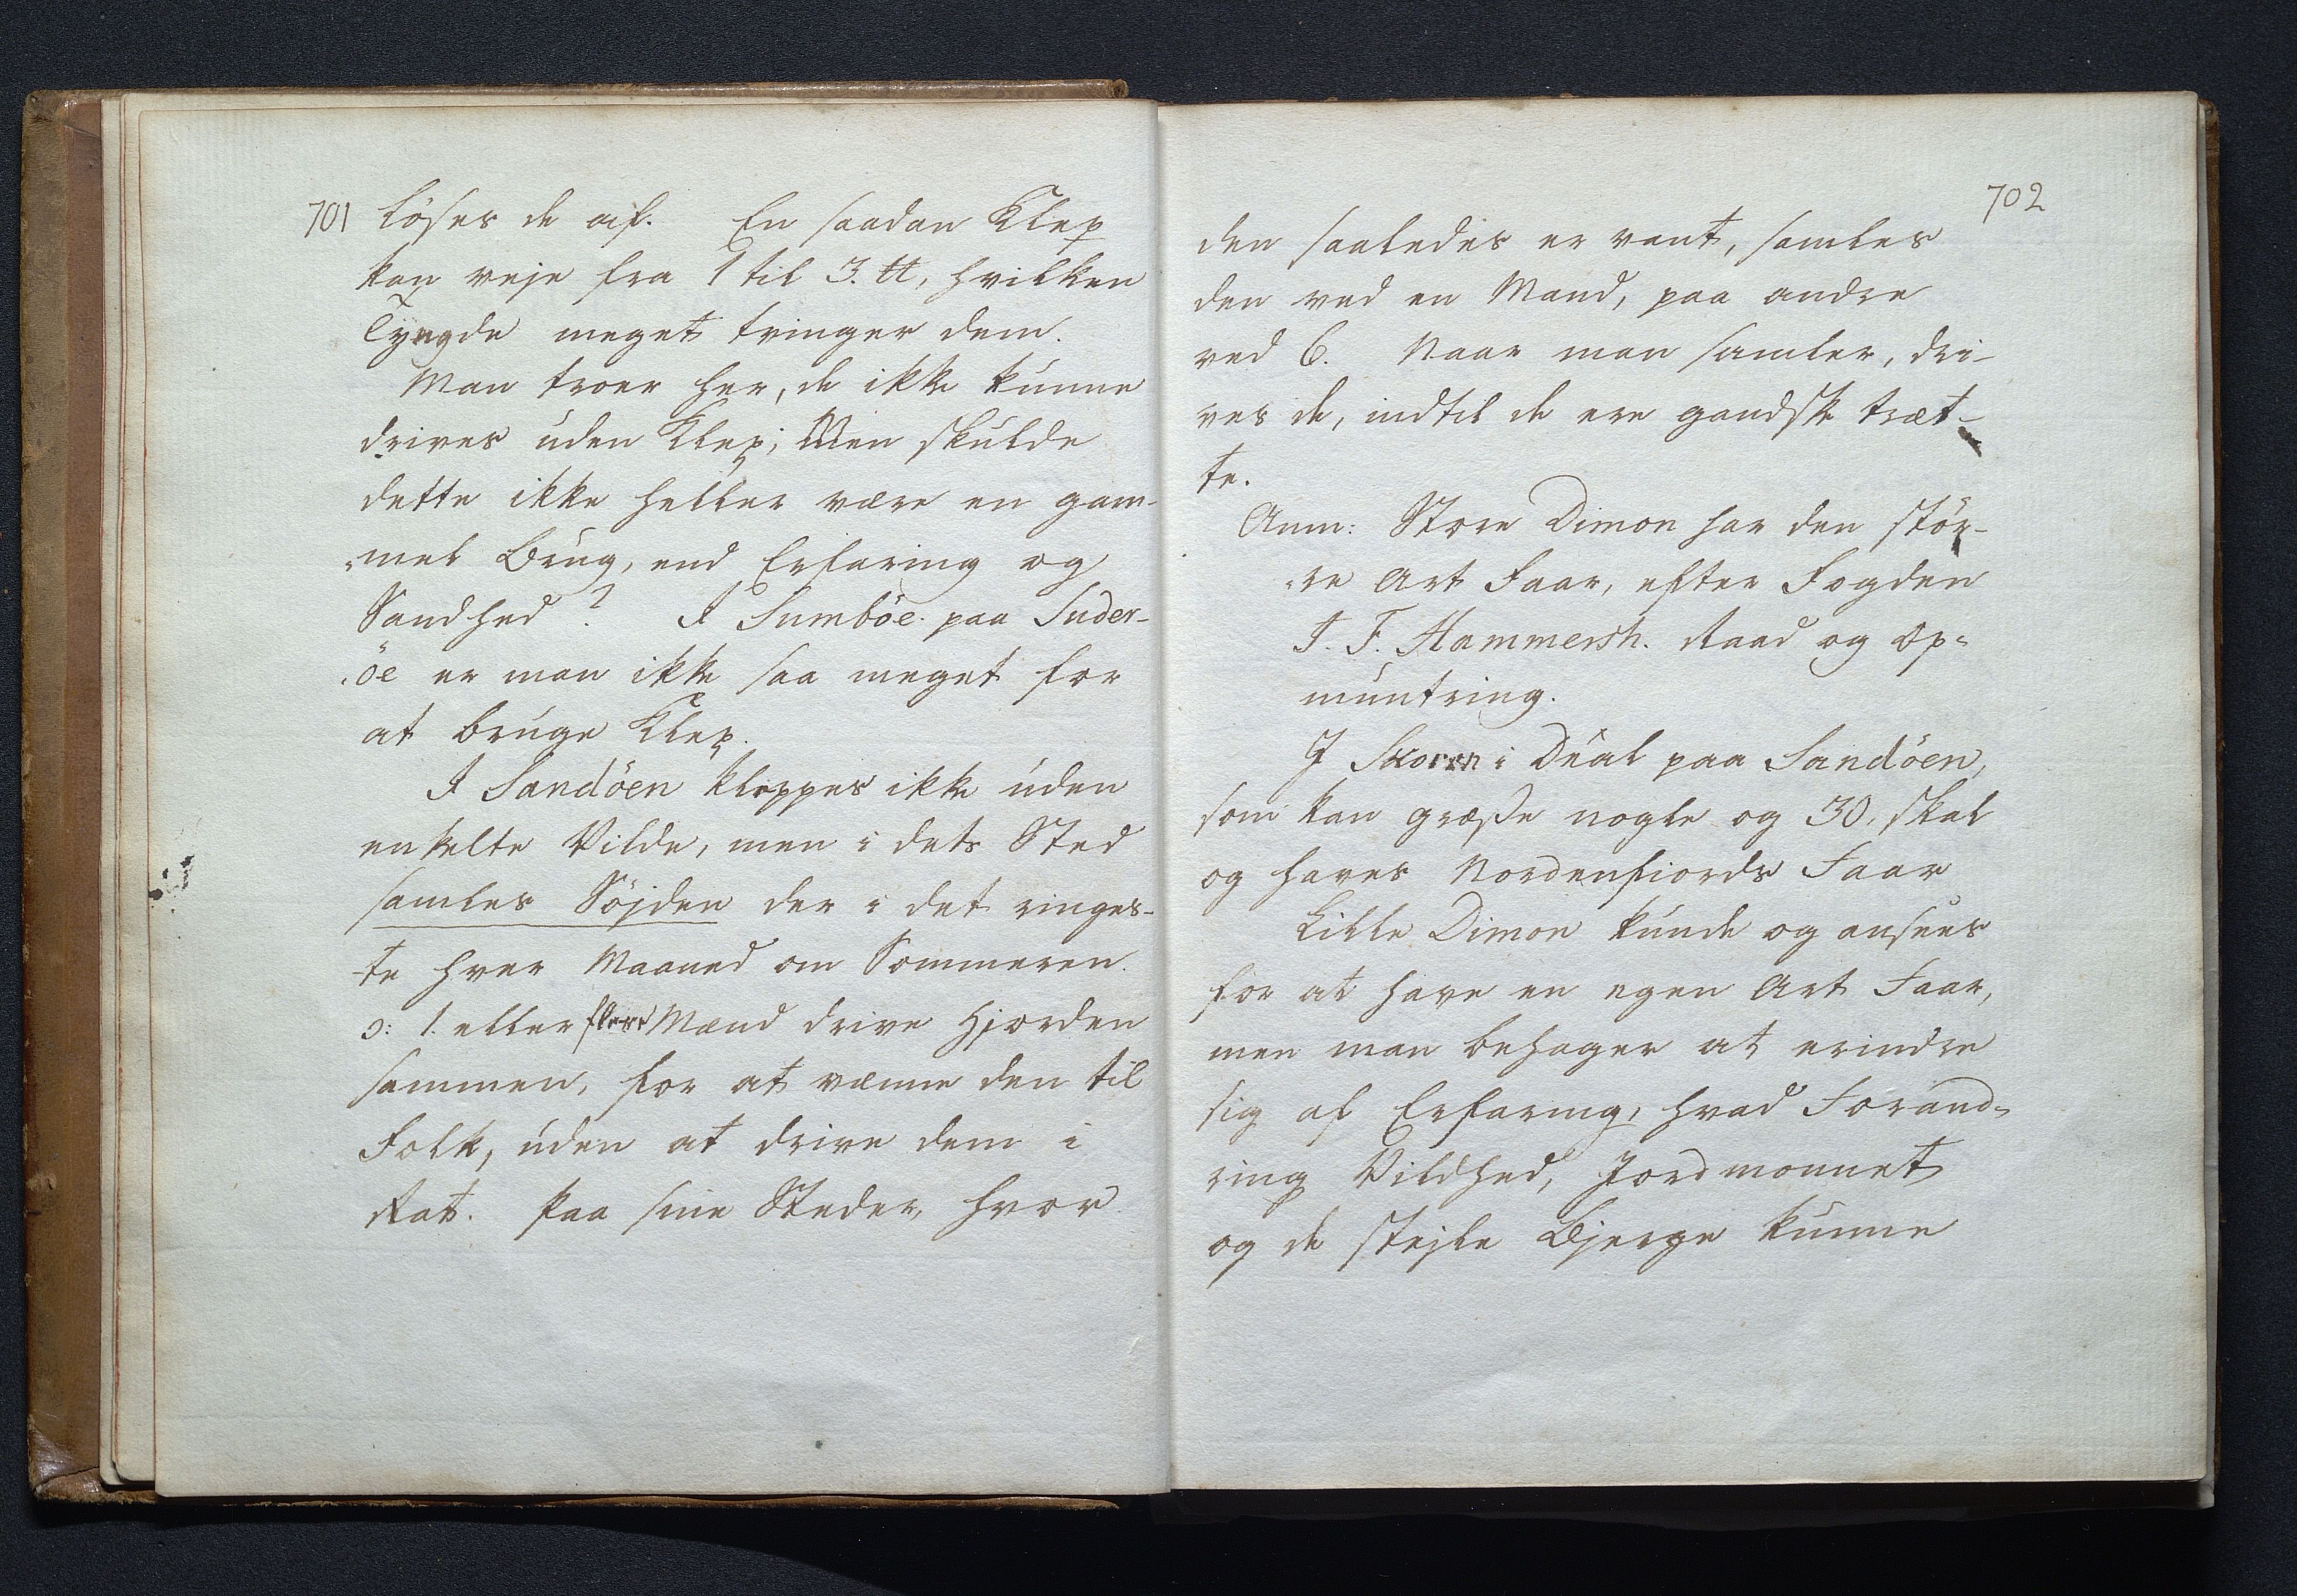 701
löses de af. En saadan Klep
kan veje fra 1 til 3. ℔, hvilken
Tyngde meget tvinger dem.
Man troer her, de ikke kunne
drives uden Klep; Men skulde
dette ikke heller være en gam-
mel Brug, end Erfaring og
Sandhed? I Sumböe paa Suder-
öe er man ikke saa meget for
at bruge Klep.
I Sandöen kleppes ikke uden
enkelte Vilde, men i dets Sted
samles Söjden der i det ringes-
te hver Maaned om Sommeren.
ɔ: 1. eller flere Mænd drive Hjorden
sammen, for at vænne den til
Folk, uden at drive dem i
Rat. Paa sine Steder, hvor
702
den saaledes er vant, samles
den ved en Mand, paa andre
ved 6. Naar man samler, dri-
ves de, indtil de ere gandske træt-
te.
Anm: Store Dimon har den stör-
re Art Faar, efter Fogden
J. F. Hammersh. Raad og Op-
muntring.
I Skoren i Dual paa Sandöen,
som kan græsse nogle og 30, skal
og haves Nordenfiords Faar
Lille Dimon kunde og ansees
for at have en egen Art Faar,
men man behager at erindre
sig af Erfaring, hvad Forand-
ring Vildhed, Jordmonnet
og de stejle Bjerge kunne